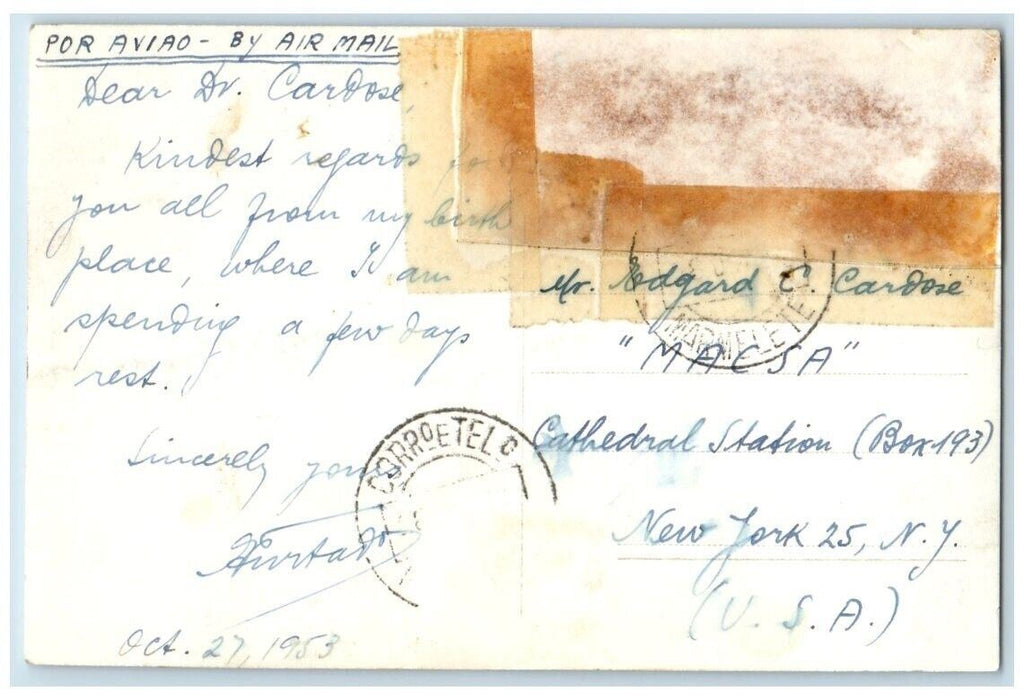 POR AVIAO - BY AIR MAIL
Dear Dr. Cardose,
Kindest regards to
you all from my birth
place, where I am
spending a few days
rest.
Sincerely yours
Hurtado
Oct. 27, 1953
Mr. Edgard C. Cardose
"MACSA"
Cathedral Station (Box 193)
New York 25, N.Y.
(U.S.A.)
MARMELETE
CORRO E TEL